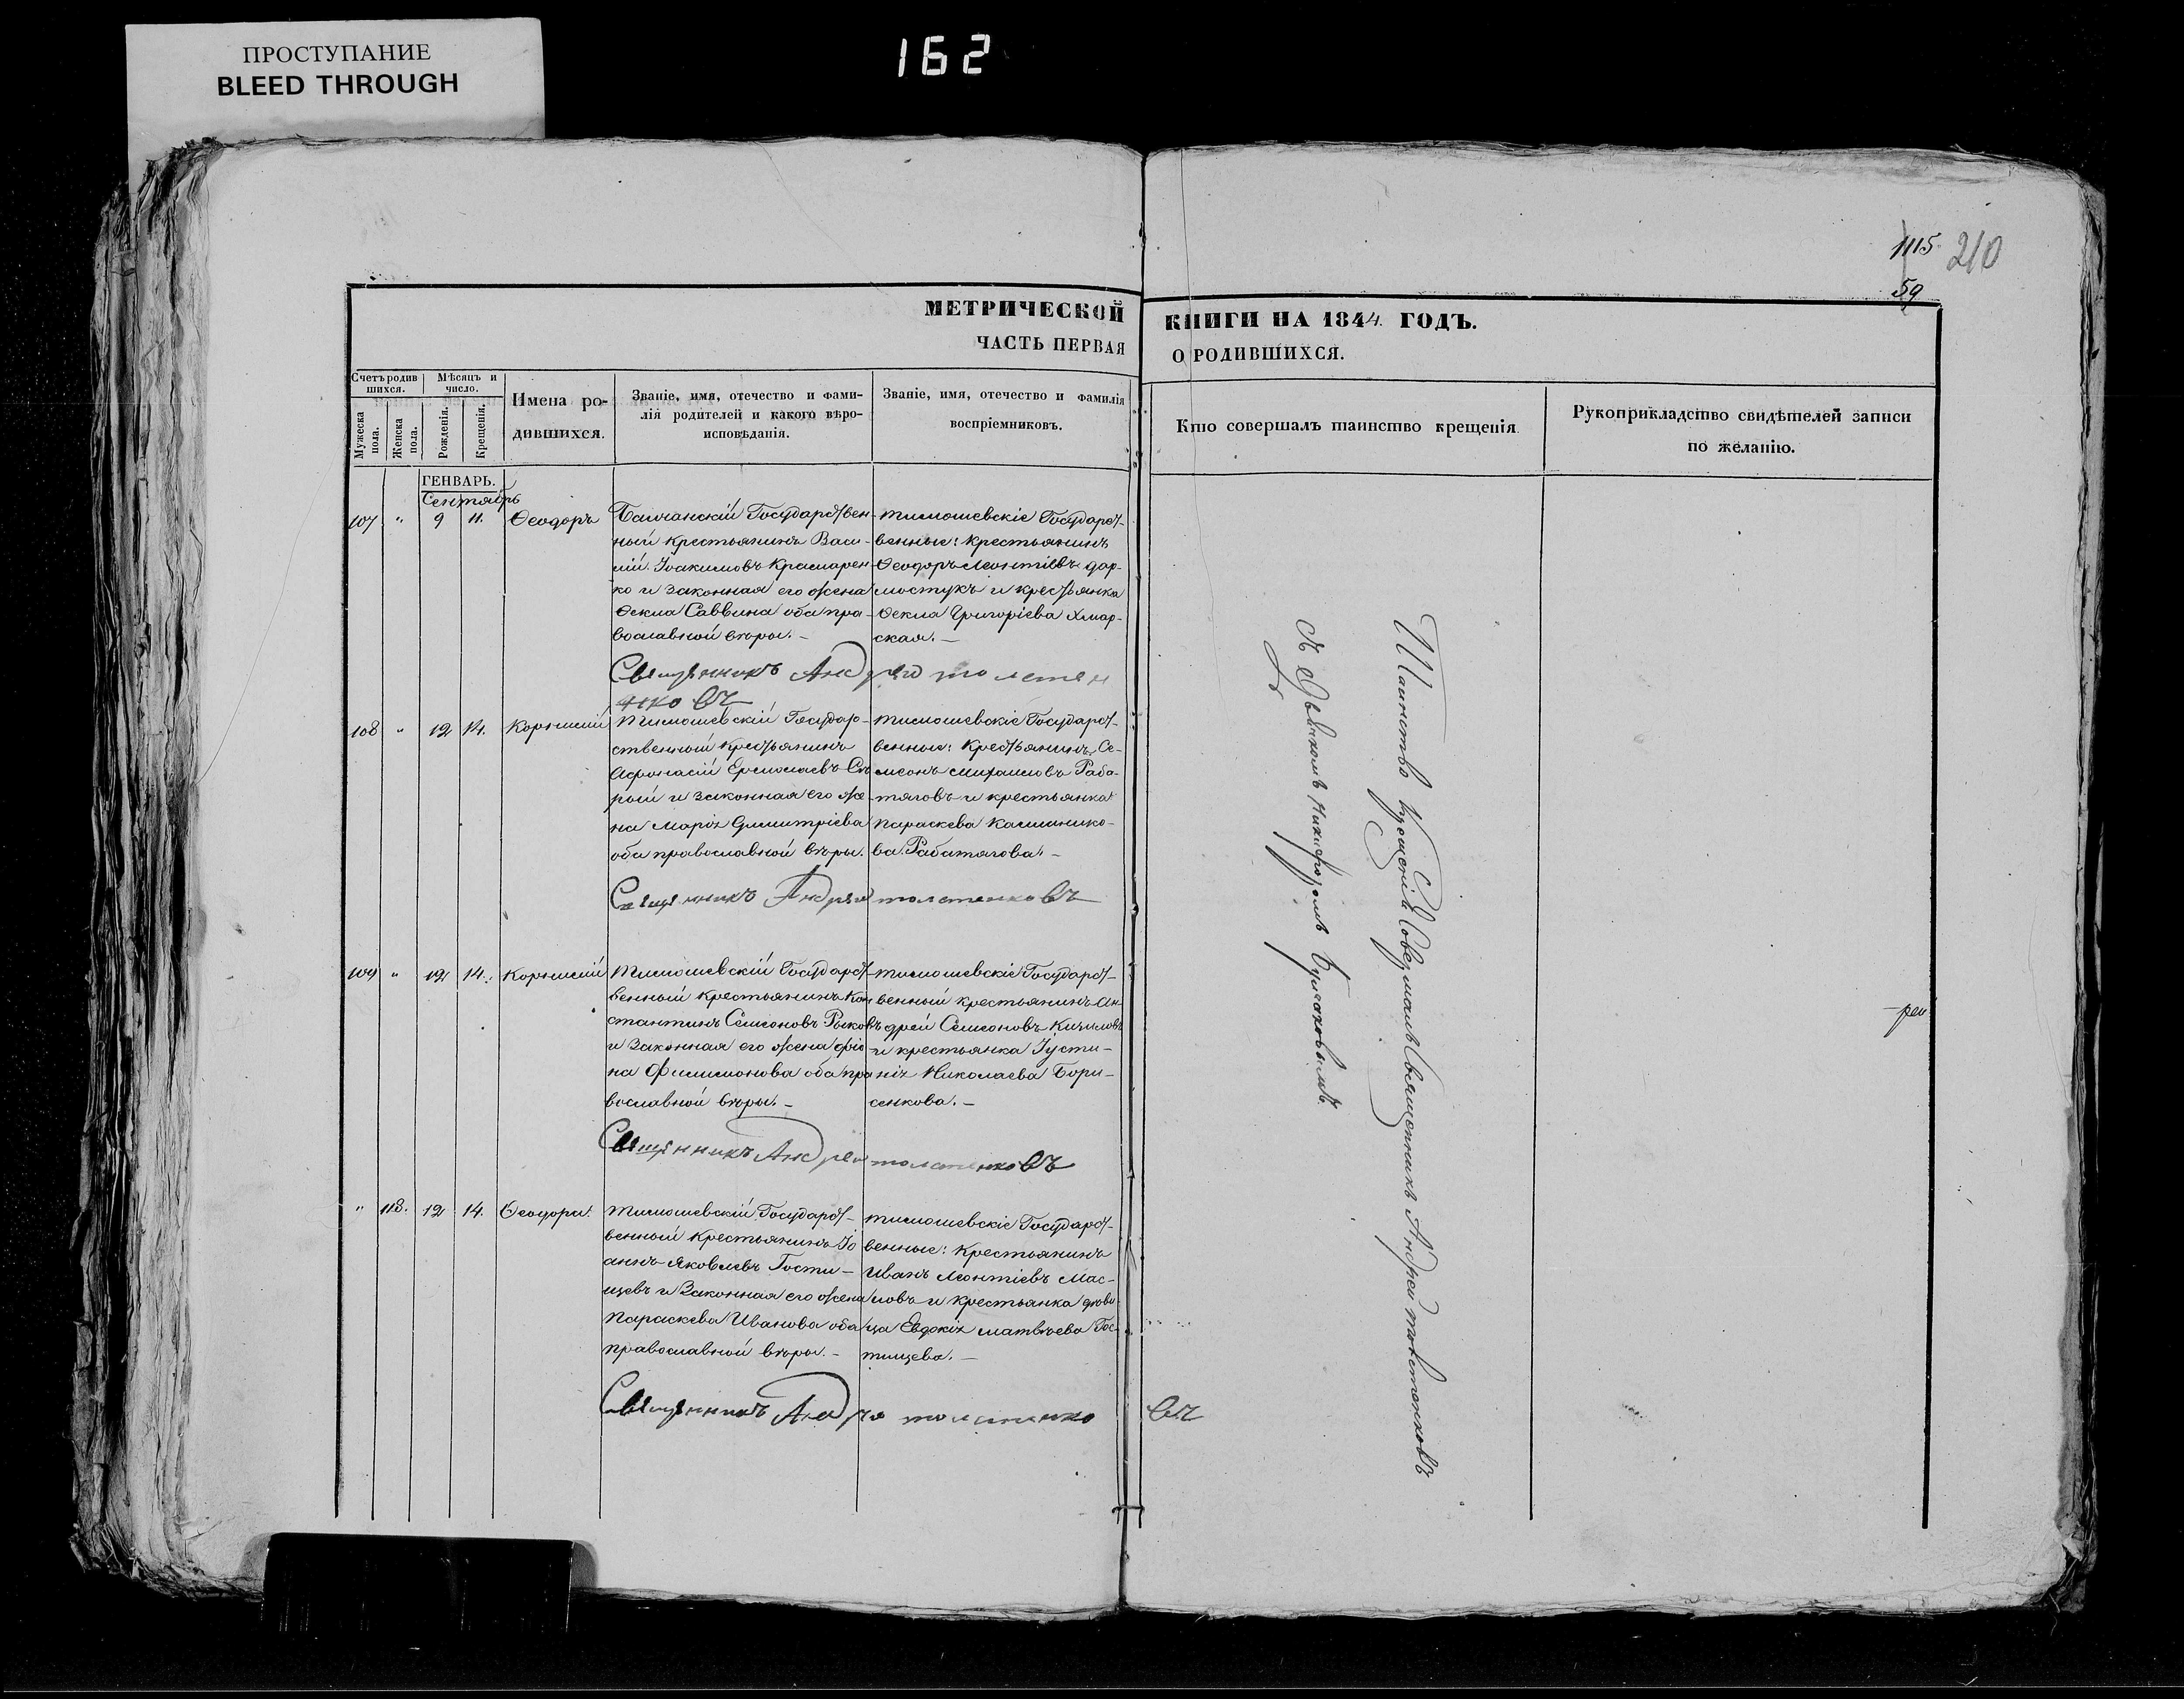 ПРОСТУПАНИЕ
BLEED THROUGH
162
1115 210
59
МЕТРИЧЕСКОЙ КНИГИ НА 1844. ГОДЪ.
ЧАСТЬ ПЕРВАЯ О РОДИВШИХСЯ.
Счетъ родив
шихся.
Мѣсяцъ и
число.
Мужеска пола.
Женска пола.
Рожденія.
Крещенія.
Имена ро-
дившихся.
Званіе, имя, отечество и фами-
лія родителей и какого вѣро-
исповѣданія.
Званіе, имя, отечество и фамилія
воспріемниковъ.
Кто совершалъ таинство крещенія
Рукоприкладство свидѣтелей записи
по желанію.
ГЕНВАРЬ.
Сентябрь
107 " 9 11. Ѳеодоръ
Государствен-
ный крестьянинъ Васи-
лій Іоакимовъ Крамарен-
ко и законная его жена
Ѳекла Саввина оба пра-
вославной вѣры.-
Тимошевскіе Государст-
венные: крестьянинъ
Ѳеодоръ Леонтіевъ дар-
мостукъ и крестьянка
Ѳекла Григоріева Хмар-
ская.-
Священникъ Андрей толстен
нковъ
108 " 12 14. Корнилій
Тимошевскій Государ-
ственный крестьянинъ
Афонасій Ермолаевъ Сѣ
рый и законная его же-
на Марія Димитріева
оба православной вѣры.
Тимошевскіе Государст-
венные: крестьянинъ Се-
меонъ Михаиловъ Раба-
тяговъ и крестьянка
Параскева Калинико-
ва Рабатягова.-
Священникъ Андрей толстенковъ
109 " 12 14. Корнилій
Тимошевскій Государст-
венный крестьянинъ Кон
стантинъ Семеоновъ Рыковъ
и законная его жена фіо-
на Филимонова оба пра
вославной вѣры.-
Тимошевскіе Государст-
венный крестьянинъ Ан
дрей Семеоновъ
и крестьянка Іусти-
нія Николаева Бори-
сенкова.-
Священникъ Андрей толстенковъ
" 118. 12 14. Ѳеодора.
Тимошевскій Государст-
венный крестьянинъ Іо
аннъ Яковлевъ Гости-
щевъ и законная его жена
Параскева Иванова оба
православной вѣры.-
Тимошевскіе Государст-
венные: крестьянинъ
Иванъ Леонтіевъ Мас-
ловъ и крестьянка дѣви
ца Евдокія Матвѣева Гос-
тищева.-
Священникъ Андрей толстенко въ
Таинство крещенія Совершалъ Священникъ Андрей толстенковъ
съ Дьякономъ Никифоромъ Булгаковымъ.